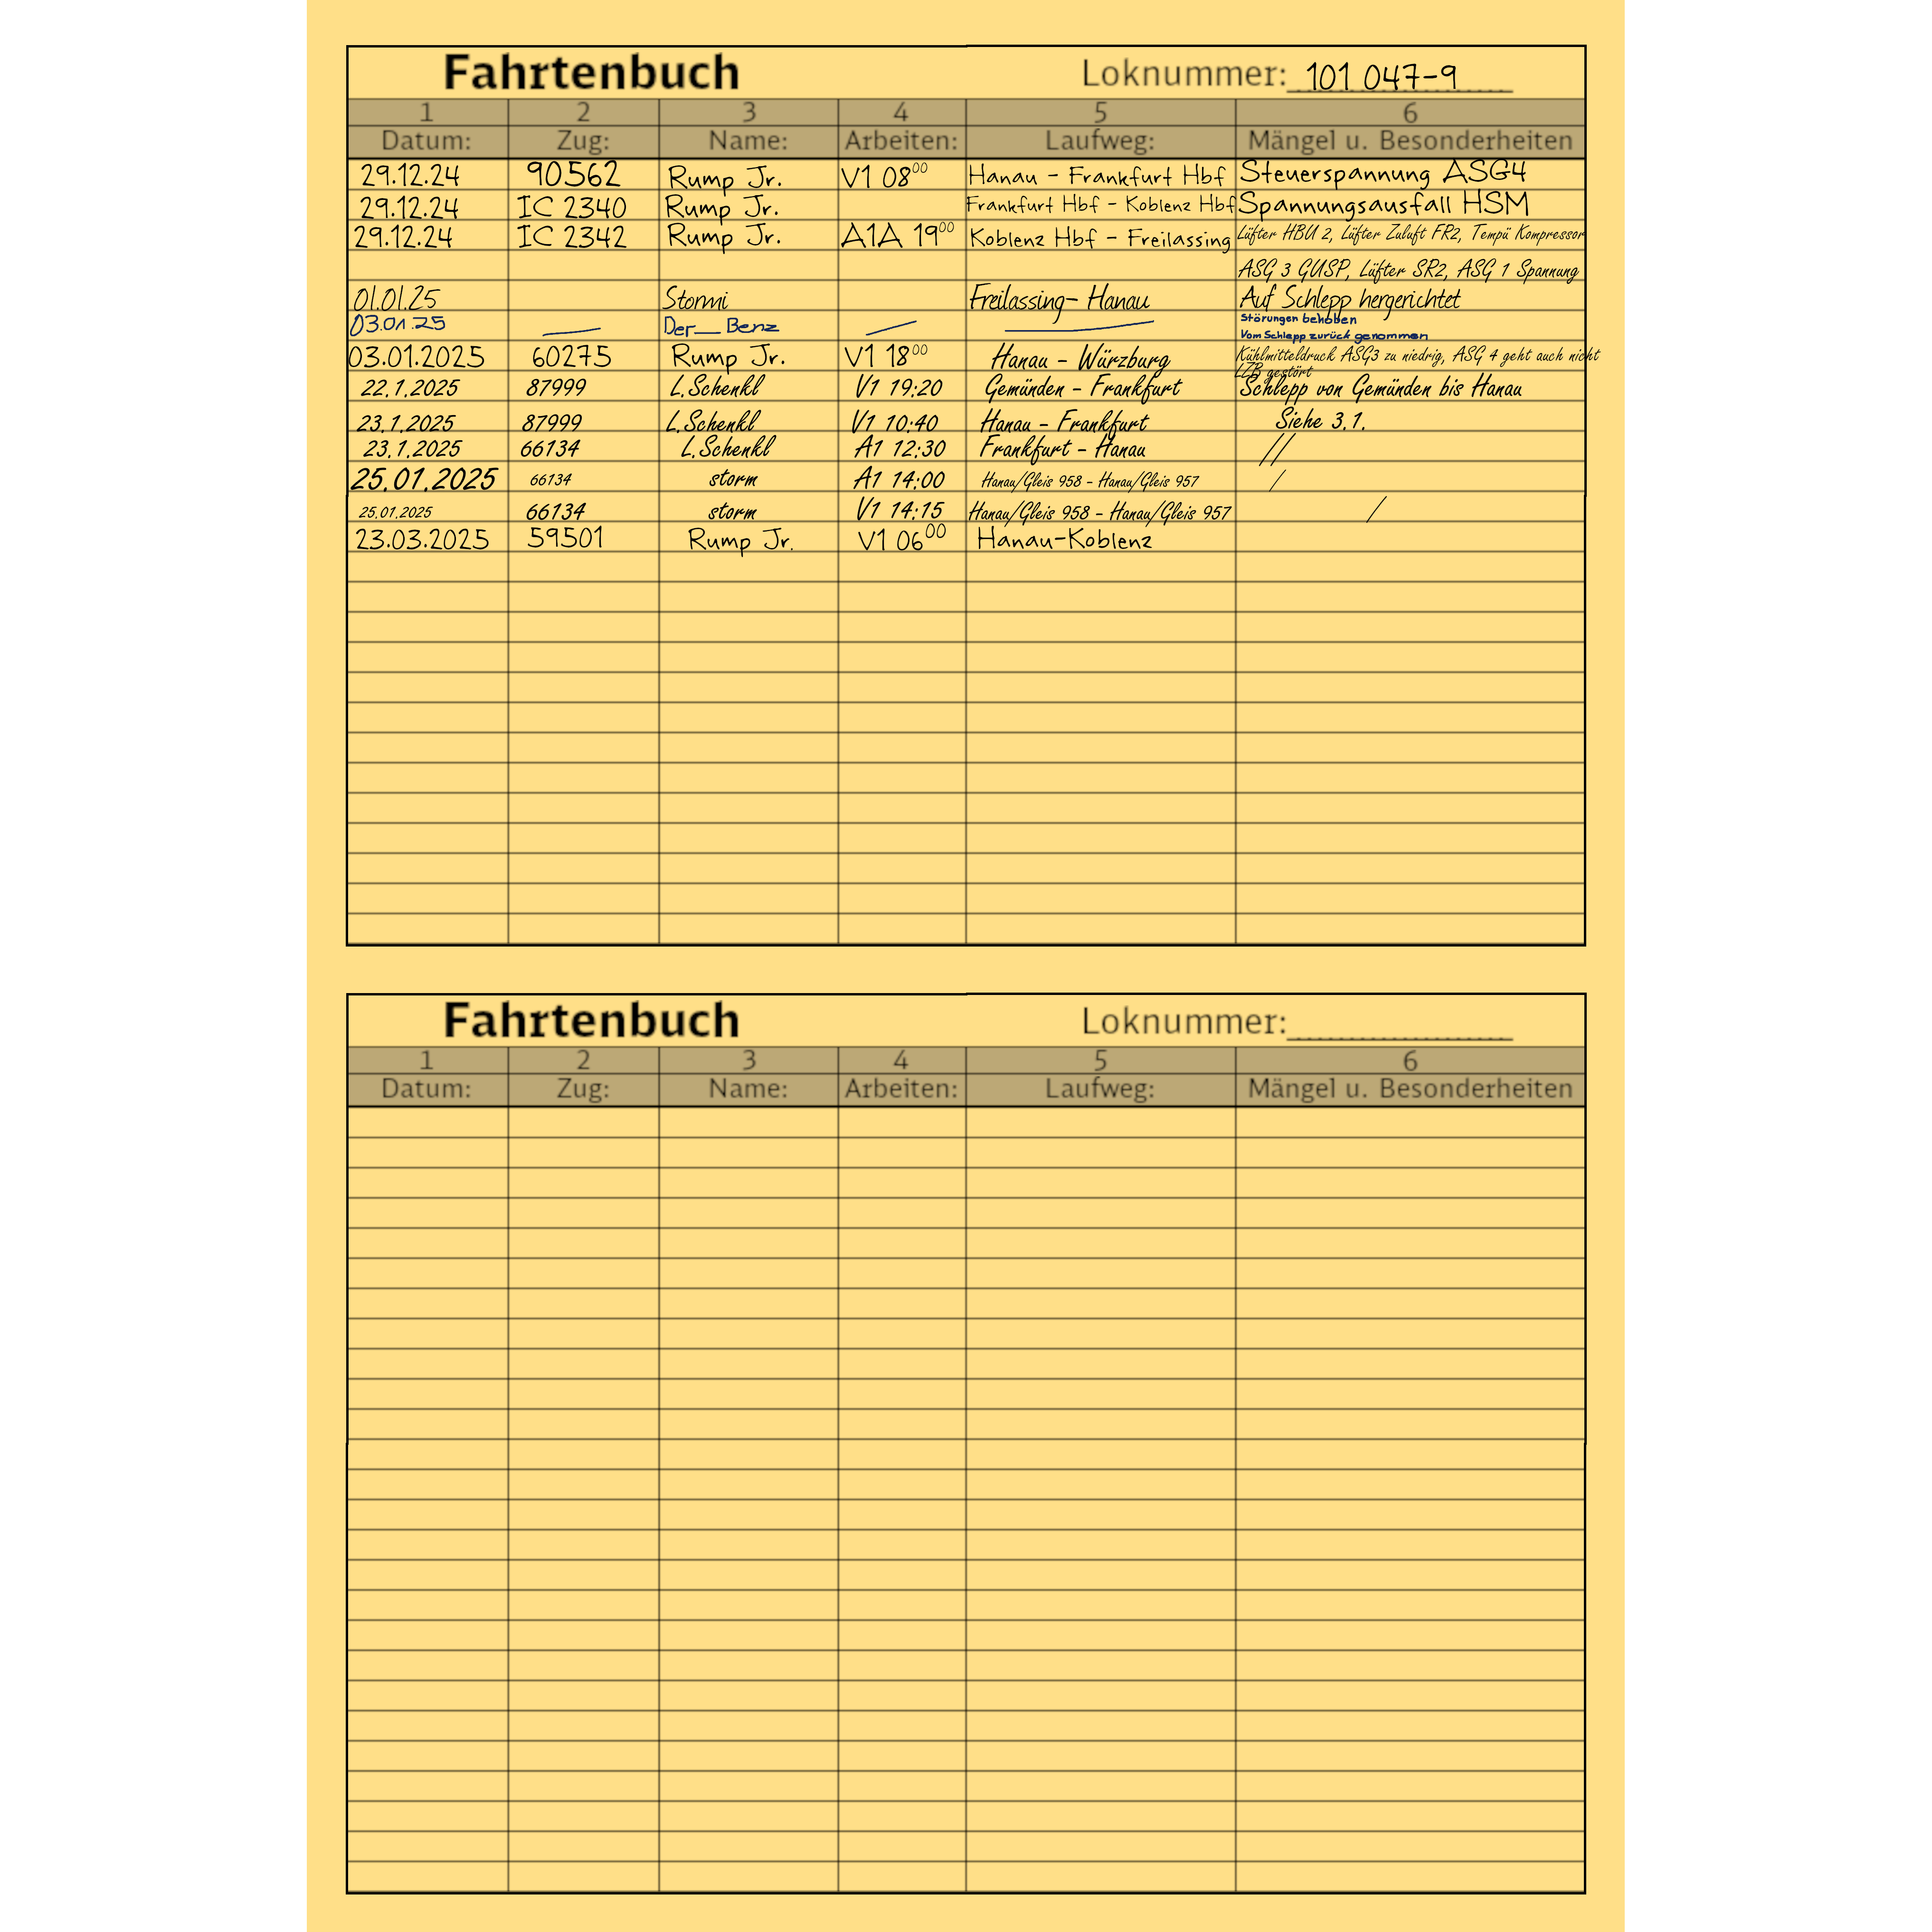 Fahrtenbuch Loknummer: 101 047-9
1 2 3 4 5 6
Datum: Zug: Name: Arbeiten: Laufweg: Mängel u. Besonderheiten
29.12.24 90562 Rump Jr. V1 08⁰⁰ Hanau - Frankfurt Hbf Steuerspannung ASG4
29.12.24 IC 2340 Rump Jr. Frankfurt Hbf - Koblenz Hbf Spannungsausfall HSM
29.12.24 IC 2342 Rump Jr. A1A 19⁰⁰ Koblenz Hbf - Freilassing Lüfter HBU 2, Lüfter Zuluft FR2, Tempü Kompressor
ASG 3 GUSP, Lüfter SR2, ASG 1 Spannung
01.01.25 Stormi Freilassing- Hanau Auf Schlepp hergerichtet
03.01.25 — Der__Benz — — Störungen behoben
Vom Schlepp zurück genommen
03.01.2025 60275 Rump Jr. V1 18⁰⁰ Hanau - Würzburg Kühlmitteldruck ASG3 zu niedrig, ASG 4 geht auch nicht
LZB gestört
22.1.2025 87999 L.Schenkl V1 19:20 Gemünden - Frankfurt Schlepp von Gemünden bis Hanau
23.1.2025 87999 L.Schenkl V1 10:40 Hanau - Frankfurt Siehe 3.1.
23.1.2025 66134 L.Schenkl A1 12:30 Frankfurt - Hanau //
25.01.2025 66134 storm A1 14:00 Hanau/Gleis 958 - Hanau/Gleis 957 /
25.01.2025 66134 storm V1 14:15 Hanau/Gleis 958 - Hanau/Gleis 957 /
23.03.2025 59501 Rump Jr. V1 06⁰⁰ Hanau-Koblenz
Fahrtenbuch Loknummer:
1 2 3 4 5 6
Datum: Zug: Name: Arbeiten: Laufweg: Mängel u. Besonderheiten